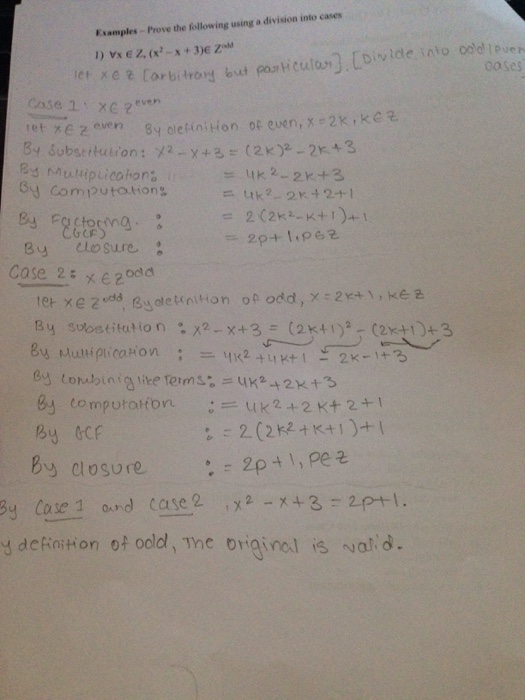 Examples – Prove the following using a division into cases
1) ∀x ∈ Z, (x² – x + 3) ∈ Z^odd
let x ∈ Z [arbitrary but particular]. [Divide into odd/even cases]
Case 1: x ∈ Z^even
let x ∈ Z^even By definition of even, x = 2k, k ∈ Z
By Substitution: x² - x + 3 = (2k)² - 2k + 3
By Multiplication: = 4k² - 2k + 3
By Computation: = 4k² - 2k + 2 + 1
By Factoring (GCF): = 2(2k² - k + 1) + 1
By closure: = 2p + 1, p ∈ Z
Case 2: x ∈ Z^odd
let x ∈ Z^odd, By definition of odd, x = 2k + 1, k ∈ Z
By substitution: x² - x + 3 = (2k+1)² - (2k+1) + 3
By Multiplication: = 4k² + 4k + 1 - 2k - 1 + 3
By combinig like Terms: = 4k² + 2k + 3
By computation: = 4k² + 2k + 2 + 1
By GCF: = 2(2k² + k + 1) + 1
By closure: = 2p + 1, p ∈ Z
By Case 1 and case 2, x² - x + 3 = 2p + 1.
y definition of odd, The original is valid.